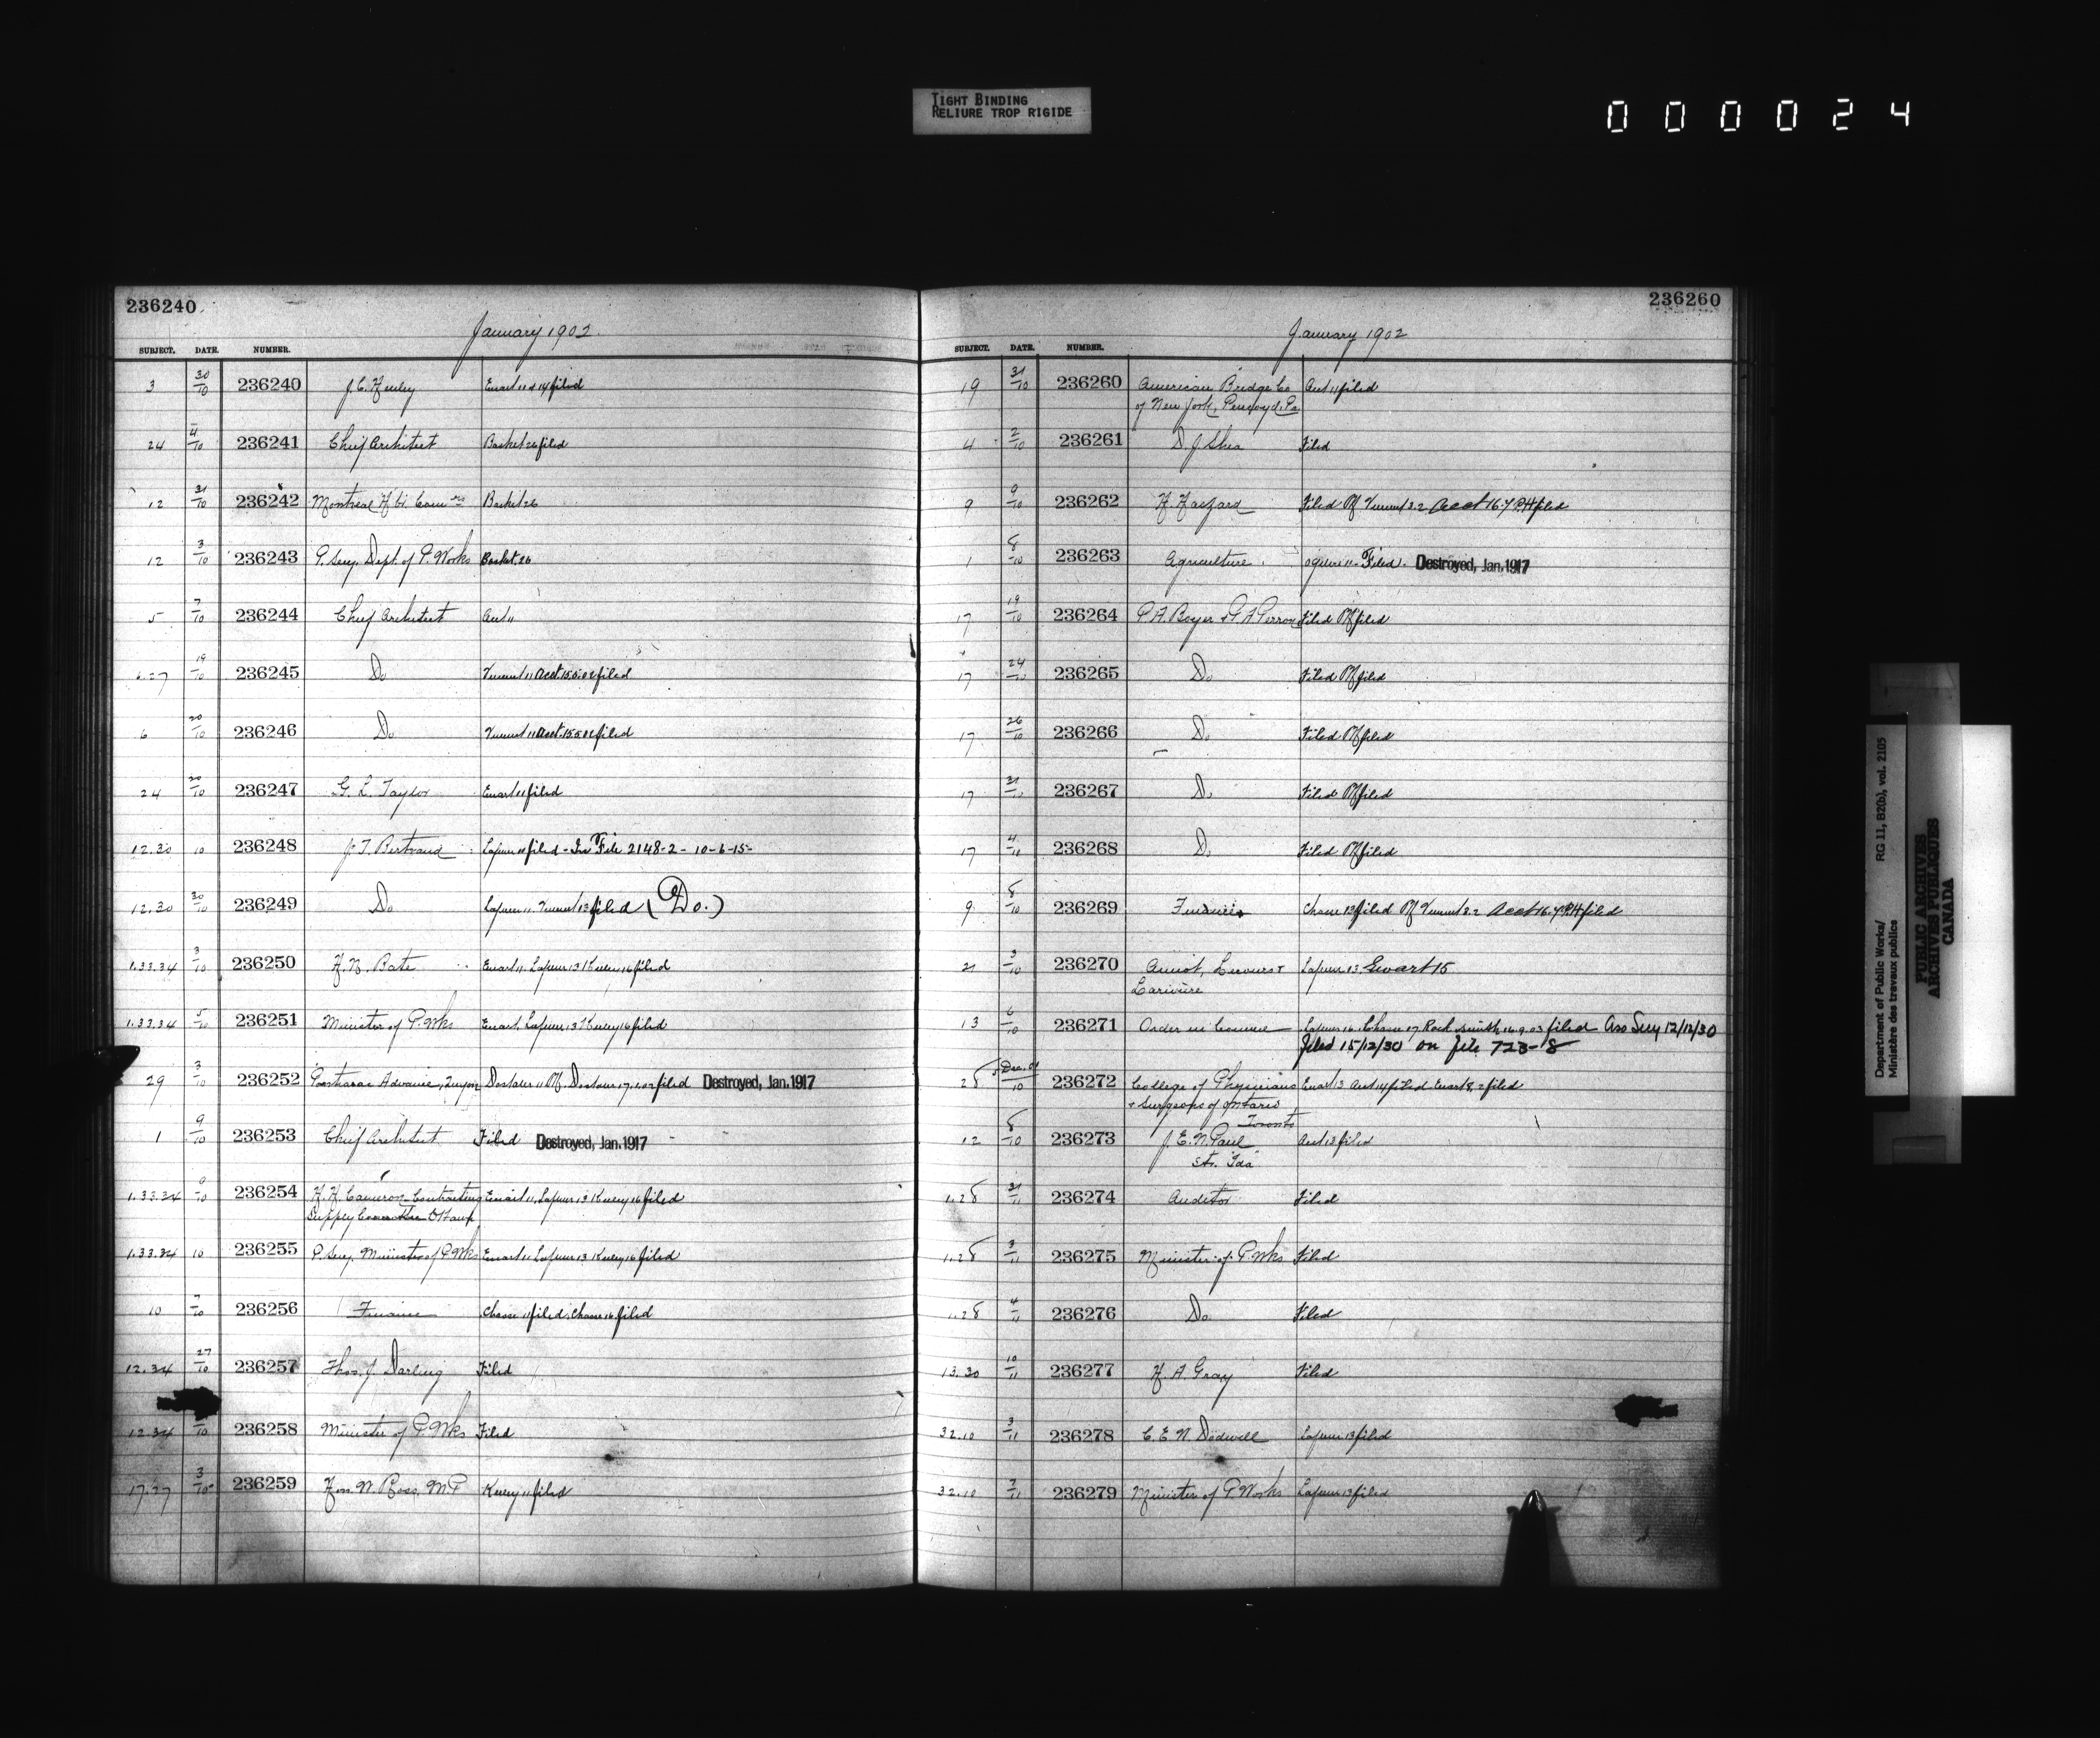 TIGHT BINDING
RELIURE TROP RIGIDE
000024
236240
January 1902.
SUBJECT. DATE. NUMBER.
3 30/10 236240 J. C. Ewart 11 & 14 filed
24 4/10 236241 Chief Architect Basket 26 filed
12 31/10 236242 Montreal Basket 26
12 3/10 236243 P. Secy. Dept. of P. Works Basket 26
5 7/10 236244 Chief Architect Aut 11
6.27 19/10 236245 Do Vincent 11 Acct. 15.5.02 filed
6 20/10 236246 Do Vincent 11 Acct. 15.5.02 filed
24 20/10 236247 G. L. Taylor Ewart 11 filed
12.30 10 236248 J. T. Bertrand Lafleur 11 filed - In File 2148-2- 10-6-15-
12.30 30/10 236249 Do Lafleur 11. Vincent 13 filed (Do.)
1.33.34 3/10 236250 H. N. Bate Ewart 11. Lafleur 13 16 filed
1.33.34 5/10 236251 Minister of P. Wks Ewart, Lafleur, 13 16 filed
29 3/10 236252 filed Destroyed, Jan. 1917
1 9/10 236253 Chief Architect Filed Destroyed, Jan. 1917
1.33.34 236254 H. H. Cameron Contracting Ewart 11, Lafleur 13 16 filed
Supply Ottawa
1.33.34 10 236255 P. Secy. Minister of P. Wks Ewart 11 Lafleur 13 16 filed
10 7/10 236256 Finance Chasse 11 filed, Chasse 16 filed
12.34 27/10 236257 Thos. J. Darling Filed
12.34 236258 Minister of P. Wks Filed
17.27 3/10 236259 Hon. W. Ross, M. P. 11 filed
236260
January 1902
SUBJECT. DATE. NUMBER.
19 31/10 236260 American Bridge Co Aut 11 filed
of New York, Pencoyd, Pa
4 2/10 236261 D. J. Shea Filed
9 9/10 236262 H. Haszard Filed Vincent 3.2 Acct 16.7 filed
1 8/10 236263 Agriculture Filed. Destroyed, Jan. 1917
17 19/10 236264 P. A. Boyer & Filed filed
17 24/10 236265 Do Filed filed
17 26/10 236266 Do Filed filed
17 31/10 236267 Do Filed filed
17 4/11 236268 Do Filed filed
9 8/10 236269 Chasse 13 filed Vincent 3.2 Acct 16.7 filed
21 3/10 236270 Amiot, Lecours & Lafleur 13 Ewart 15
Lariviere
13 6/10 236271 Order in Council Lafleur 16, Chasse 17. 16.9.03 filed Ass Secy 12/12/30
filed 15/12/30 on file 723-8
28 5 Dec. 01/10 236272 College of Physicians Ewart 13 Aut 14 filed Ewart 8.2 filed
& Surgeons of Ontario
Toronto
12 8/10 236273 J. E. N. Paul Aut 13 filed
Str. "Ida"
1.28 31/11 236274 Auditor Filed
1.28 3/11 236275 Minister of P. Wks Filed
1.28 4/11 236276 Do Filed
13.30 10/11 236277 H. A. Gray Filed
32.10 3/11 236278 C. E. W. Dodwell Lafleur 13 filed
32.10 7/11 236279 Minister of P Works Lafleur 13 filed
Department of Public Works/ RG 11, B2(b), vol. 2105
Ministère des travaux publics
PUBLIC ARCHIVES
ARCHIVES PUBLIQUES
CANADA